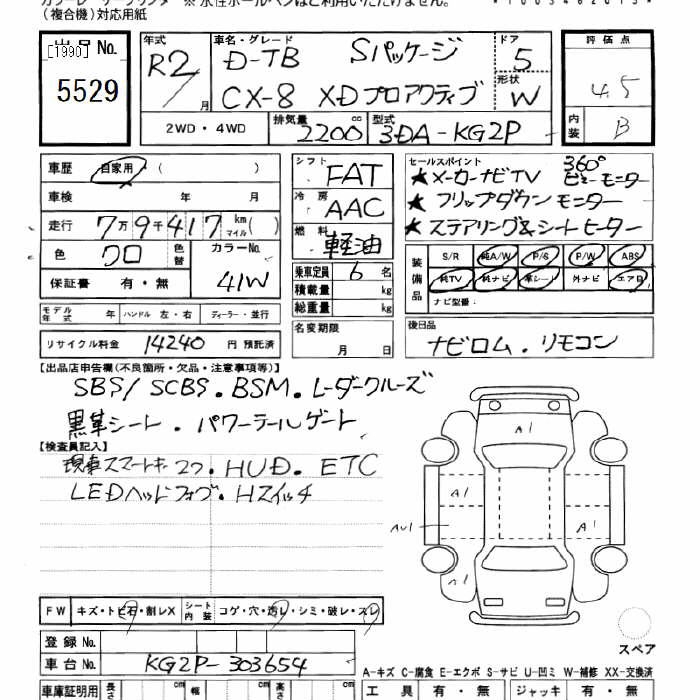 (複合機)対応用紙
出品No. [1990] 5529
年式 R2 / 月
車名・グレード D-TB Sパッケージ
CX-8 XDプロアクティブ
ドア 5
形状 W
評価点 4.5
内装 B
2WD・4WD 排気量 2200 cc 型式 3DA-KG2P
車歴 自家用 ( )
車検 年 月
走行 7万9千417 km マイル ( )
色 クロ 色替 カラーNo. 41W
保証書 有・無
モデル年式 年 ハンドル 左・右 ディーラー・並行
リサイクル料金 14240 円 預託済
シフト FAT
冷房 AAC
燃料 軽油
乗車定員 6 名
積載量 kg
総重量 kg
名変期限 月 日
セールスポイント 360°
★メーカーナビTV ビューモニター
★フリップダウンモニター
★ステアリング&シートヒーター
装備品 S/R 純A/W P/S P/W ABS
純TV 純ナビ 革シート 外ナビ エアB
ナビ型番:
後日品
ナビロム.リモコン
【出品店申告欄(不良箇所・欠品・注意事項等)】
SBS/SCBS.BSM.レーダークルーズ
黒革シート.パワーテールゲート
【検査員記入】
現車スマートキー2ケ.HUD.ETC
LEDヘッドフォグ.Hスイッチ
A1
A1
AU1
A1
A1
スペア
FW キズ・トビ石・割レX シート内装 コゲ・穴・透レ・シミ・破レ・スレ
登録No.
車台No. KG2P-303654
A-キズ C-腐食 E-エクボ S-サビ U-凹ミ W-補修 XX-交換済
車庫証明用 長さ cm 幅 cm 高さ cm
工具 有・無 ジャッキ 有・無